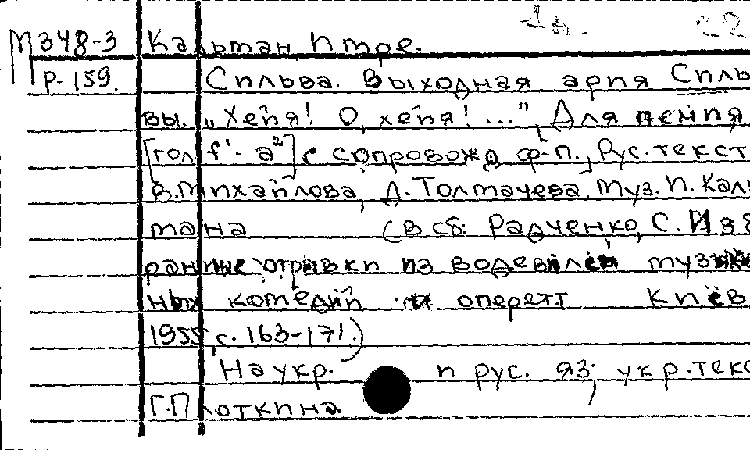 М348-3 Кальман, Имре.
Р-159. Сильва. Выходная ария Силь
вы. „Хейя! О, хейя!...", Для пения
[гол f¹- a²] с сопровожд ф-п., Рус. текст
В. Михайлова, Д. Толмачева, муз. И. Каль
мана (В сб: Радченко, С. Из
бранные отрывки из водевилей муз
ных комедий и оперетт Киев
1955, с. 163-171.)
На укр. и рус. яз; укр. текс
Г. Плоткина.